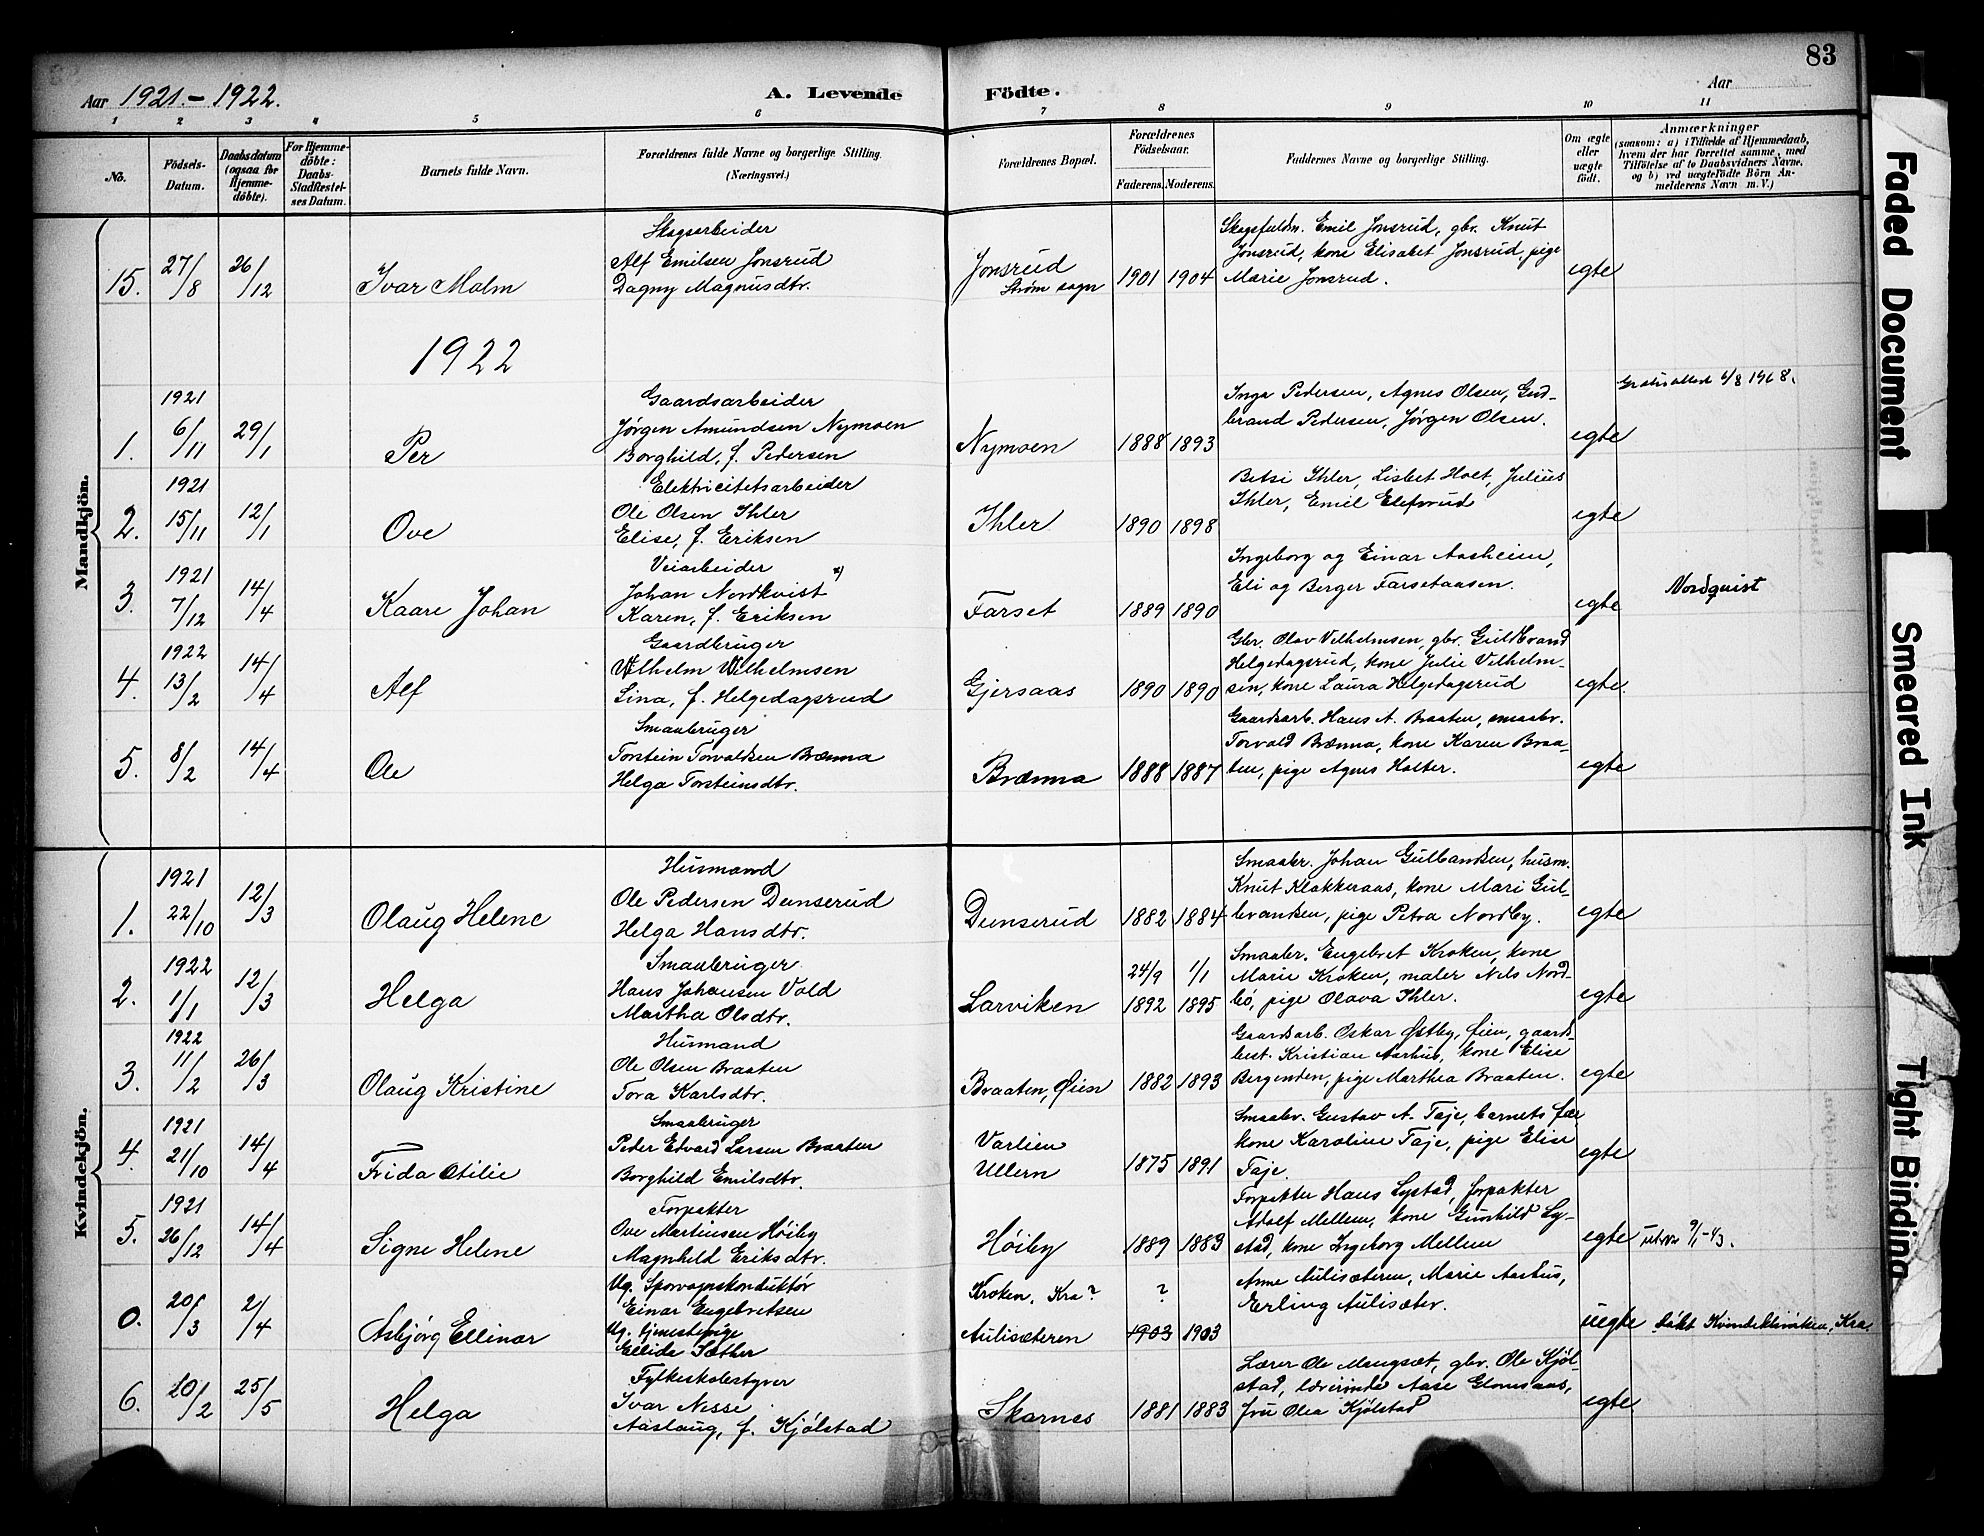 83
Aar 1921.-1922.
A. Levende Födte.
Aar
1 2 3 4 5 6 7 8 9 10 11
No.
Födsels-Datum.
Daabsdatum (ogsaa for Hjemme-döbte).
For Hjemme-döbte: Daabs-Stadfæstel-ses Datum.
Barnets fulde Navn.
Forældrenes fulde Navne og borgerlige Stilling. (Næringsvei.)
Forældrenes Bopæl.
Forældrenes Födselsaar.
Faderens. Moderens.
Faddernes Navne og borgerlige Stilling.
Om ægte eller uægte födt.
Anmærkninger
(saasom: a) i Tilfælde af Hjemmedaab, hvem der har forrettet samme, med Tilföielse af to Daabsvidners Navne, og b) ved uægtefödte Börn An-melderens Navn m. V.)
Mandkjön.
15. 27/8 26/12 Ivar Malm
Skogsarbeider
Alf Emilsen Jonsrud
Dagny Magnusdtr.
Jonsrud
Strøm sogn
1901 1904
Skogsfuldm. Emil Jonsrud, gbr. Knut
Jonsrud, kone Elisabet Jonsrud, pige
Marie Jonsrud.
egte
1922
1. 1921 6/11 29/1 Per
Gaardsarbeider
Jørgen Amundsen Nymoen
Borghild, f. Pedersen
Nymoen
1888 1893
Inga Pedersen, Agnes Olsen, Gud-
brand Pedersen, Jørgen Olsen.
egte
6/8 1968.
2. 1921 15/11 12/1 Ove
Elektricitetsarbeider
Ole Olsen Ihler
Elise, f. Eriksen
Ihler
1890 1898
Betsi Ihler, Lisbet Hoet, Julius
Ihler, Emil Elefsrud
egte
3. 1921 7/12 14/4 Kaare Johan
Veiarbeider
Johan Nordkvist x)
Karen, f. Eriksen
Farset
1889 1890
Ingeborg og Einar Aasheim,
Eli og Berger Farsetaasen.
egte
Nordquist
4. 1922 13/2 14/4 Alf
Gaardbruger
Vilhelm Vilhelmsen
Lina, f. Helgedagsrud
Gjersaas
1890 1890
Gbr. Olav Vilhelmsen, gbr. Guldbrand
Helgedagsrud, kone Julie Vilhelm-
sen, kone Laura Helgedagsrud
egte.
5. 8/2 14/4 Ole
Smaabruger
Torstein Torvaldsen Brænna
Helga Torsteinsdtr.
Brænna
1888 1887
Gaardsarb. Hans A. Braaten, smaabr.
Torvald Brænna, kone Karen Braa-
ten, pige Agnes Holter.
egte
Kvindekjön.
1. 1921 22/10 12/3 Olaug Helene
Husmand
Ole Pedersen Dunserud
Helga Hansdtr.
Dunserud
1882 1884
Smaabr. Johan Gulbanken, husm.
Knut Klokkeraas, kone Mari Gul-
branken, pige Petra Nordby.
egte
2. 1922 1/1 12/3 Helga
Smaabruger
Hans Johansen Vold
Martha Olsdtr.
Larviken
24/9 1892 1/1 1895
Smaabr. Engebret Kroken, kone
Marie Kroken, maler Nils Nord-
bö, pige Olava Ihler.
egte
3. 1922 11/2 26/3 Olaug Kristine
Husmand
Ole Olsen Braaten
Tora Karlsdtr.
Braaten, Øien
1882 1893
Gaardsarb. Oskar Østby, Øien, gaards-
best. Kristian Aarhus, kone Elise
Bergenden, pige Marthea Braaten.
egte
4. 1921 21/10 14/4 Frida Otilie
Smaabruger
Peder Edvard Larsen Braaten
Borghild Emilsdtr.
Varlien
Ullern
1875 1891
Smaabr. Gustav A. Taje, barnets far
kone Karoline Taje, pige Elise
Taje
egte
5. 1921 26/12 14/4 Signe Helene
Forpakter
Ove Martinsen Höiby
Magnhild Eriksdtr.
Höiby
1889 1883
Forpakter Hans Lystad, forpakter
Adolf Mellem, kone Gunhild Ly-
stad, kone Ingeborg Mellem
egte
9/1-43.
0. 20/3 2/4 Asbjörg Ellinor
Ug. Sporvognskonduktör
Einar Engebretsen
Ug. tjenestepige
Ellida Sæther
Kroken, Kra?
Aulisæteren
?
1903 1903
Anne Aulisæteren, Marie Aarhus,
Erling Aulisæter.
uegte
Kvindeklinikken, Kra.
6. 20/2 25/5 Helga
Fylkesskolestyrer
Ivar Nesse
Aaslaug, f. Kjölstad
Skarnes
1881 1883
Lærer Ole Mangset, gbr. Ole Kjöl-
stad, lærerinde Aase Glomsaas,
fru Olea Kjölstad
egte.
Faded Document
Smeared Ink
Tight Binding